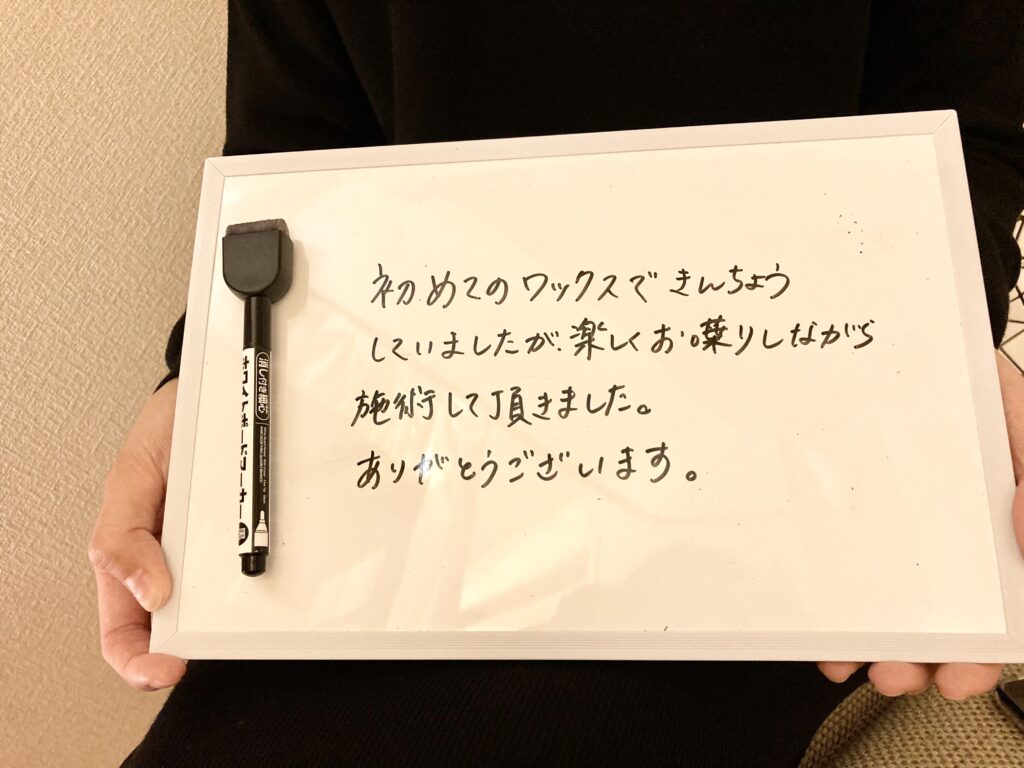 初めてのワックスできんちょう
していましたが、楽しくお喋りしながら
施術して頂きました。
ありがとうございます。
消し付き 細芯
ホワイトボードマーカー